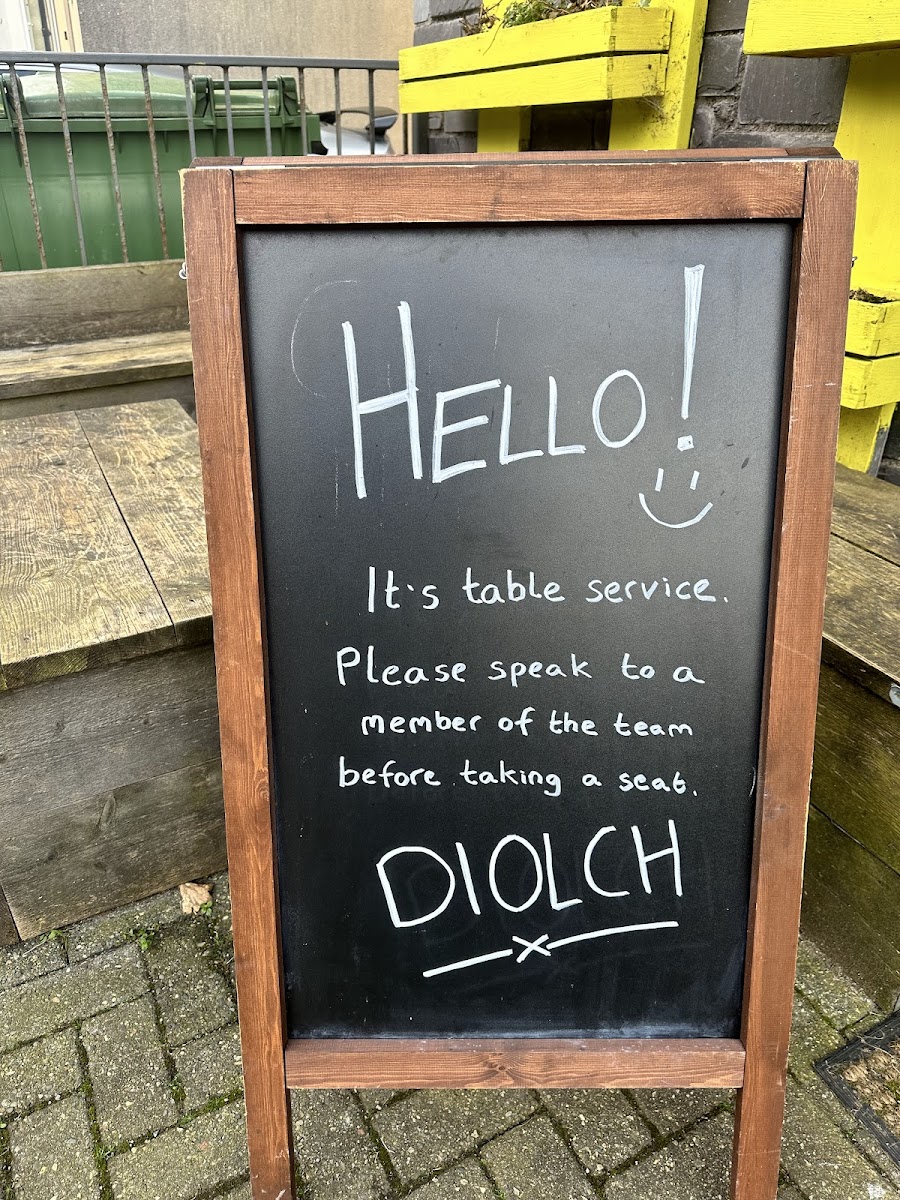 HELLO!
It's table service.
Please speak to a
member of the team
before taking a seat.
DIOLCH
x